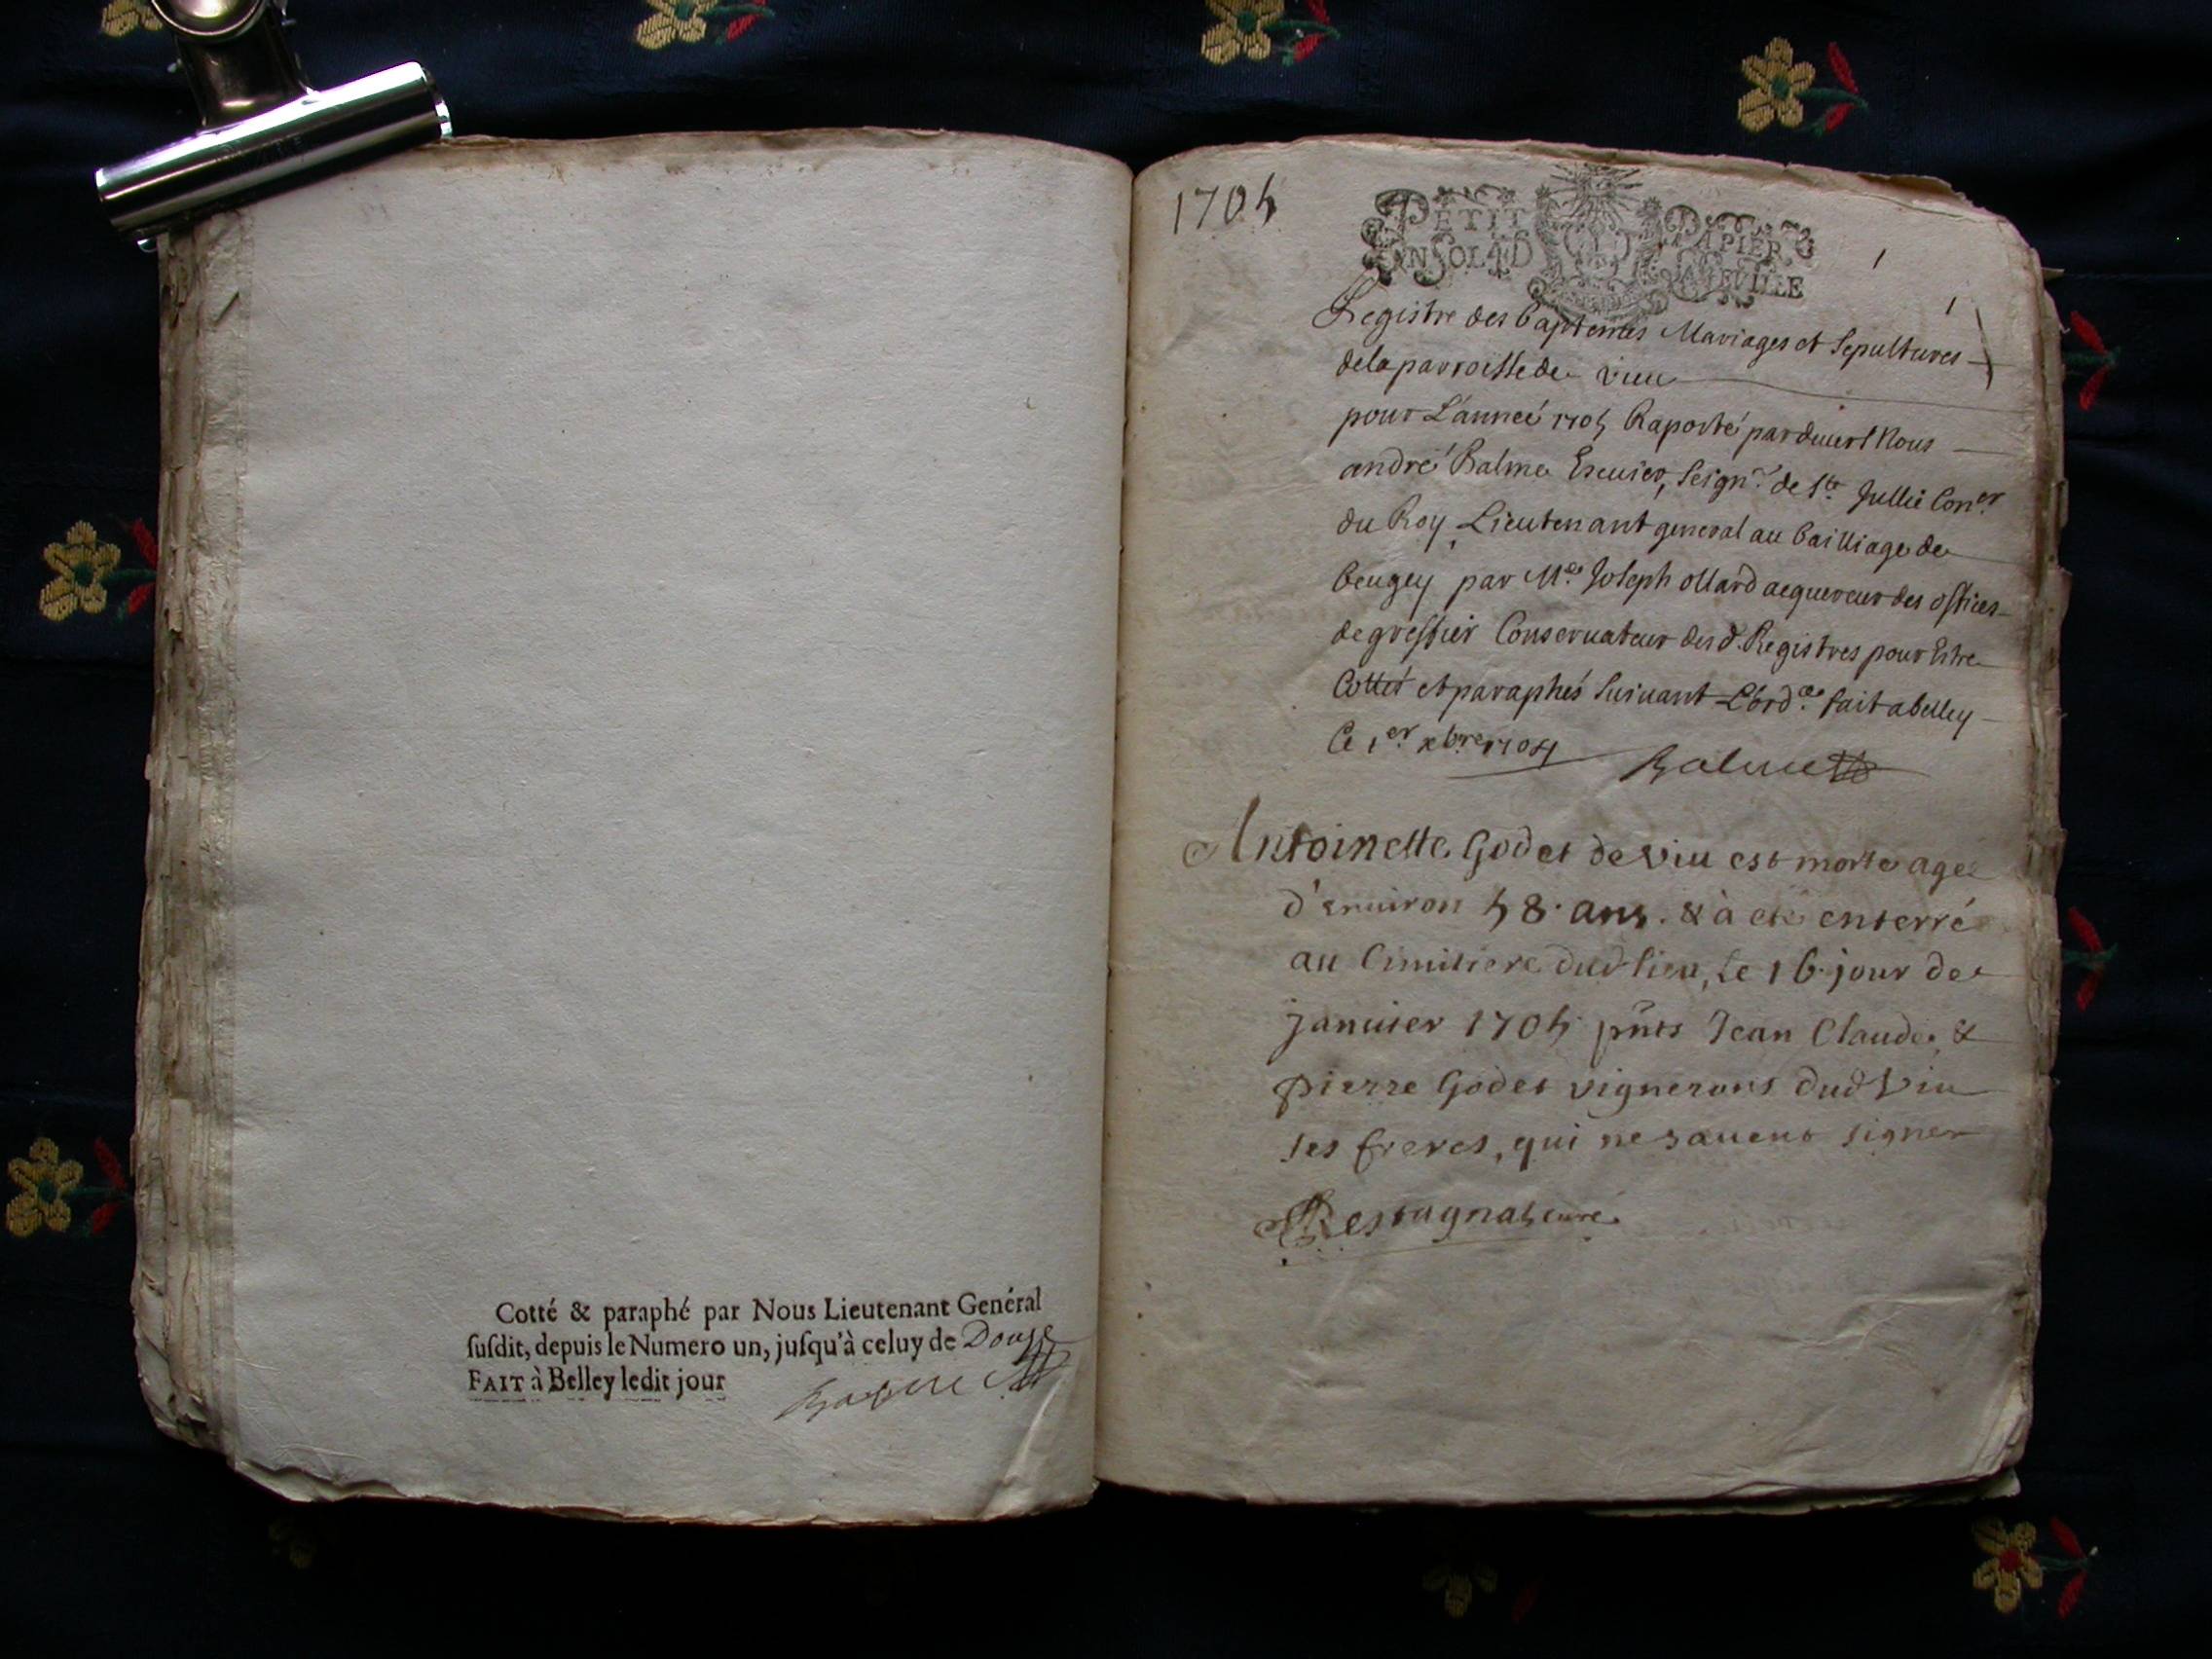 Cotté & paraphé par Nous Lieutenant Genéral
susdit, depuis le Numero un, jusqu'à celuy de Douze
FAIT à Belley ledit jour
Balme
1705
PETIT PAPIER
UN SOL 4 D LA FEUILLE
1
1
Registre des baptemes Mariages et Sepultures
de la parroisse de vieu
pour L'anneé 1705 Raporté pardeuert Nous
andré Balme Escuier, Seignr. de Ste Jullie Coner
du Roy Lieutenant general au bailliage de
beugey par Me. Joseph ollard aquereur des offices
de greffier Conseruateur desd. Registres pour Estre
Cottés et paraphés suiuant L'ord.ce fait a belley
Ce 1er xbre 1704
Balme
Antoinette Godet de Viu est morte agee
d'enuiron 58. ans. & à eté enterré
au Cimitiere dud lieu, le 16. jour de
januier 1705 pñts Jean Claude &
pierre Godet vignerons dud Viu
ses freres, qui ne sauent signer
Restagnat, curé